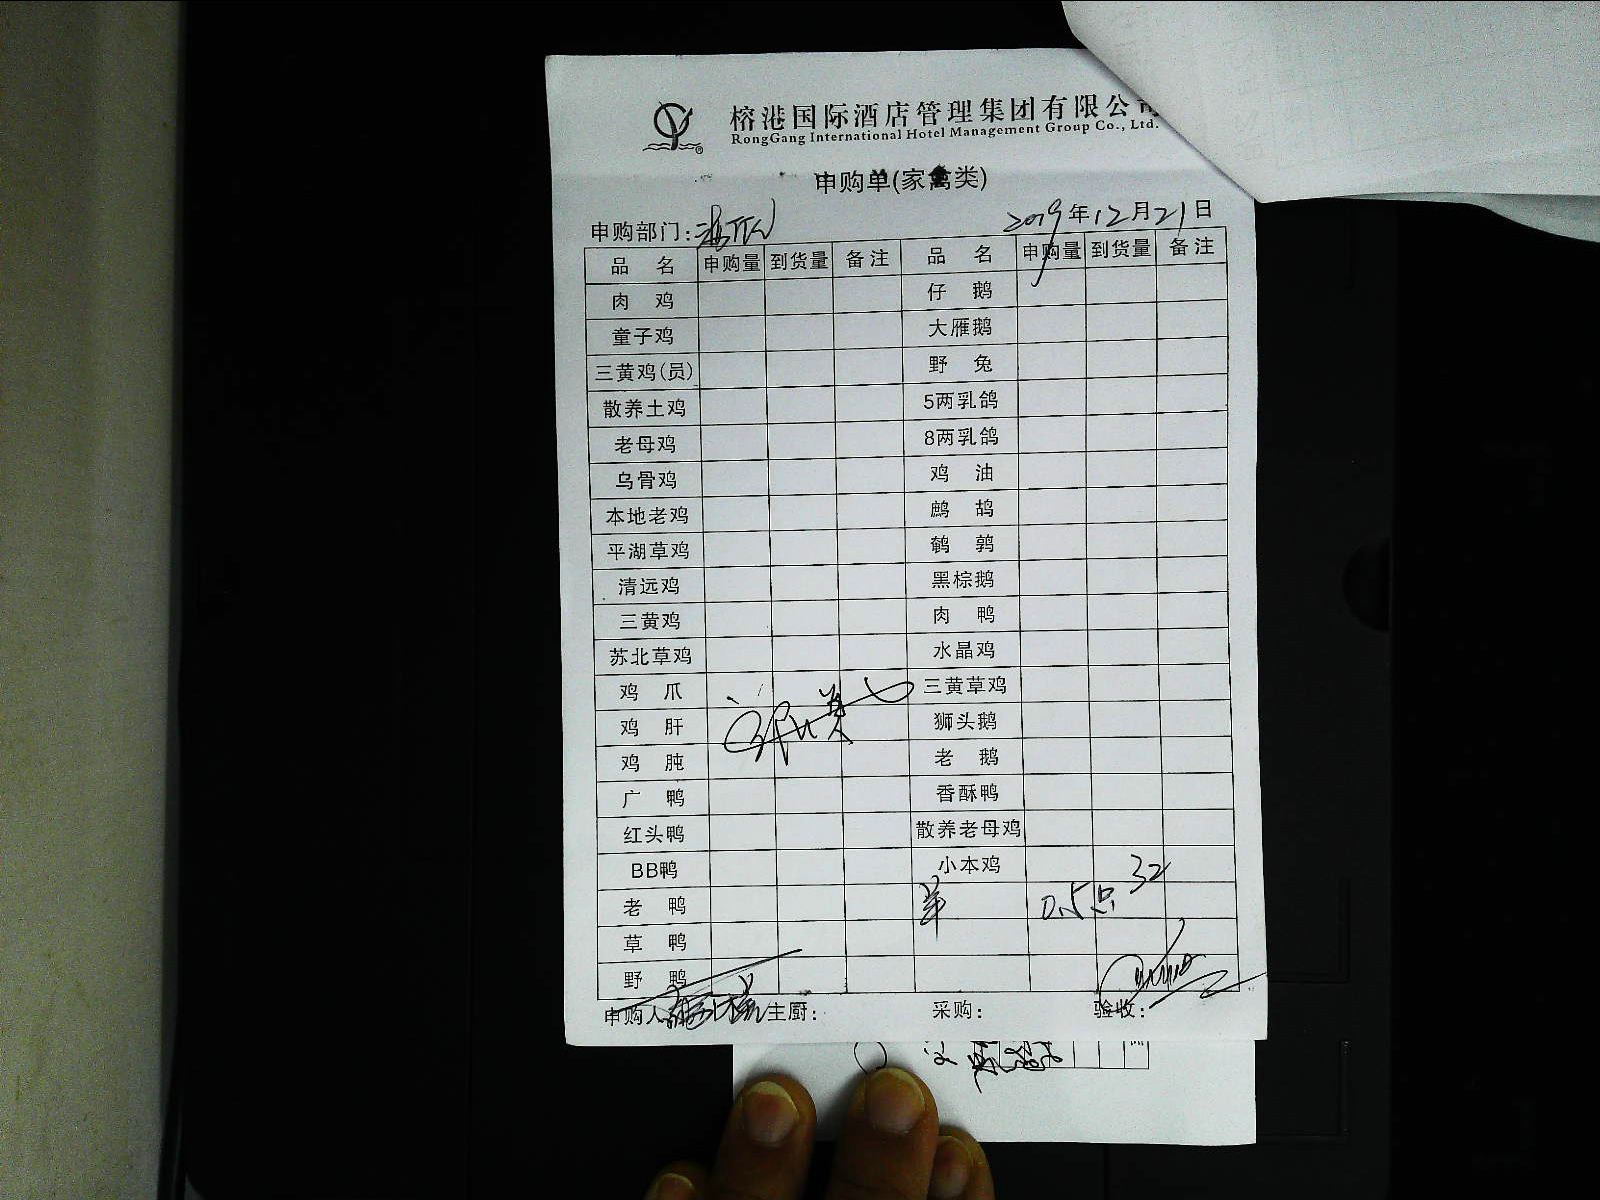 榕港国际酒店管理集团有限公司
RongGang International Hotel Management Group Co., Ltd.
申购单(家禽类)
申购部门: 2019年12月21日
品 名 申购量 到货量 备注 品 名 申购量 到货量 备注
肉 鸡 仔 鹅
童子鸡 大雁鹅
三黄鸡(员) 野 兔
散养土鸡 5两乳鸽
老母鸡 8两乳鸽
乌骨鸡 鸡 油
本地老鸡 鹧 鸪
平湖草鸡 鹌 鹑
清远鸡 黑棕鹅
三黄鸡 肉 鸭
苏北草鸡 水晶鸡
鸡 爪 三黄草鸡
鸡 肝 狮头鹅
鸡 肫 老 鹅
广 鸭 香酥鸭
红头鸭 散养老母鸡
BB鸭 小本鸡 32
老 鸭 羊 0.5只
草 鸭
野 鸭
申购人 主厨: 采购: 验收: